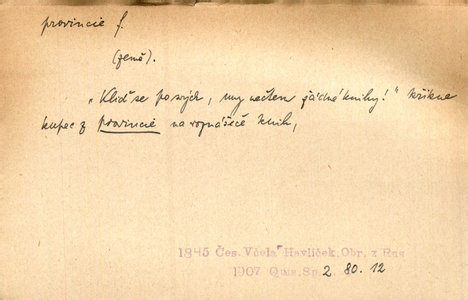 provincie f.
(země).
„Kliď se po svých, my nečtem žádné knihy!" křikne
kupec z provincie na roznášeče knih,
1845 Čes. Včela Havlíček, Obr. z Rus
1907 Quis, Sp. 2. 80. 12